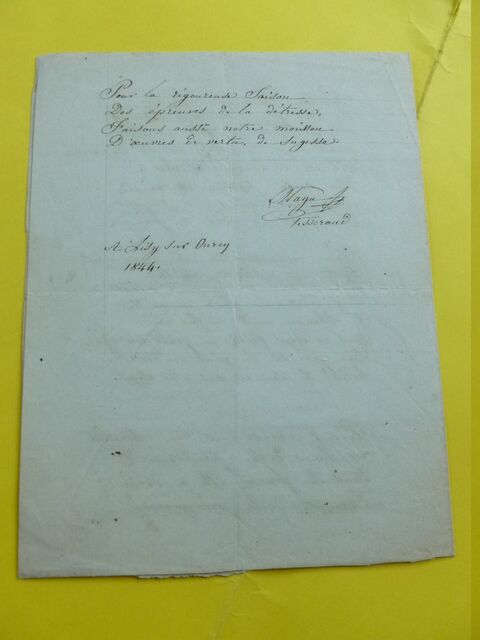 Pour la rigoureuse Saison
Des épreuves de la détresse,
Faisons aussi notre moisson
D'œuvres de vertu, de sagesse.
Magu
Tisserand
A Lisy sur Ourcq
1844.